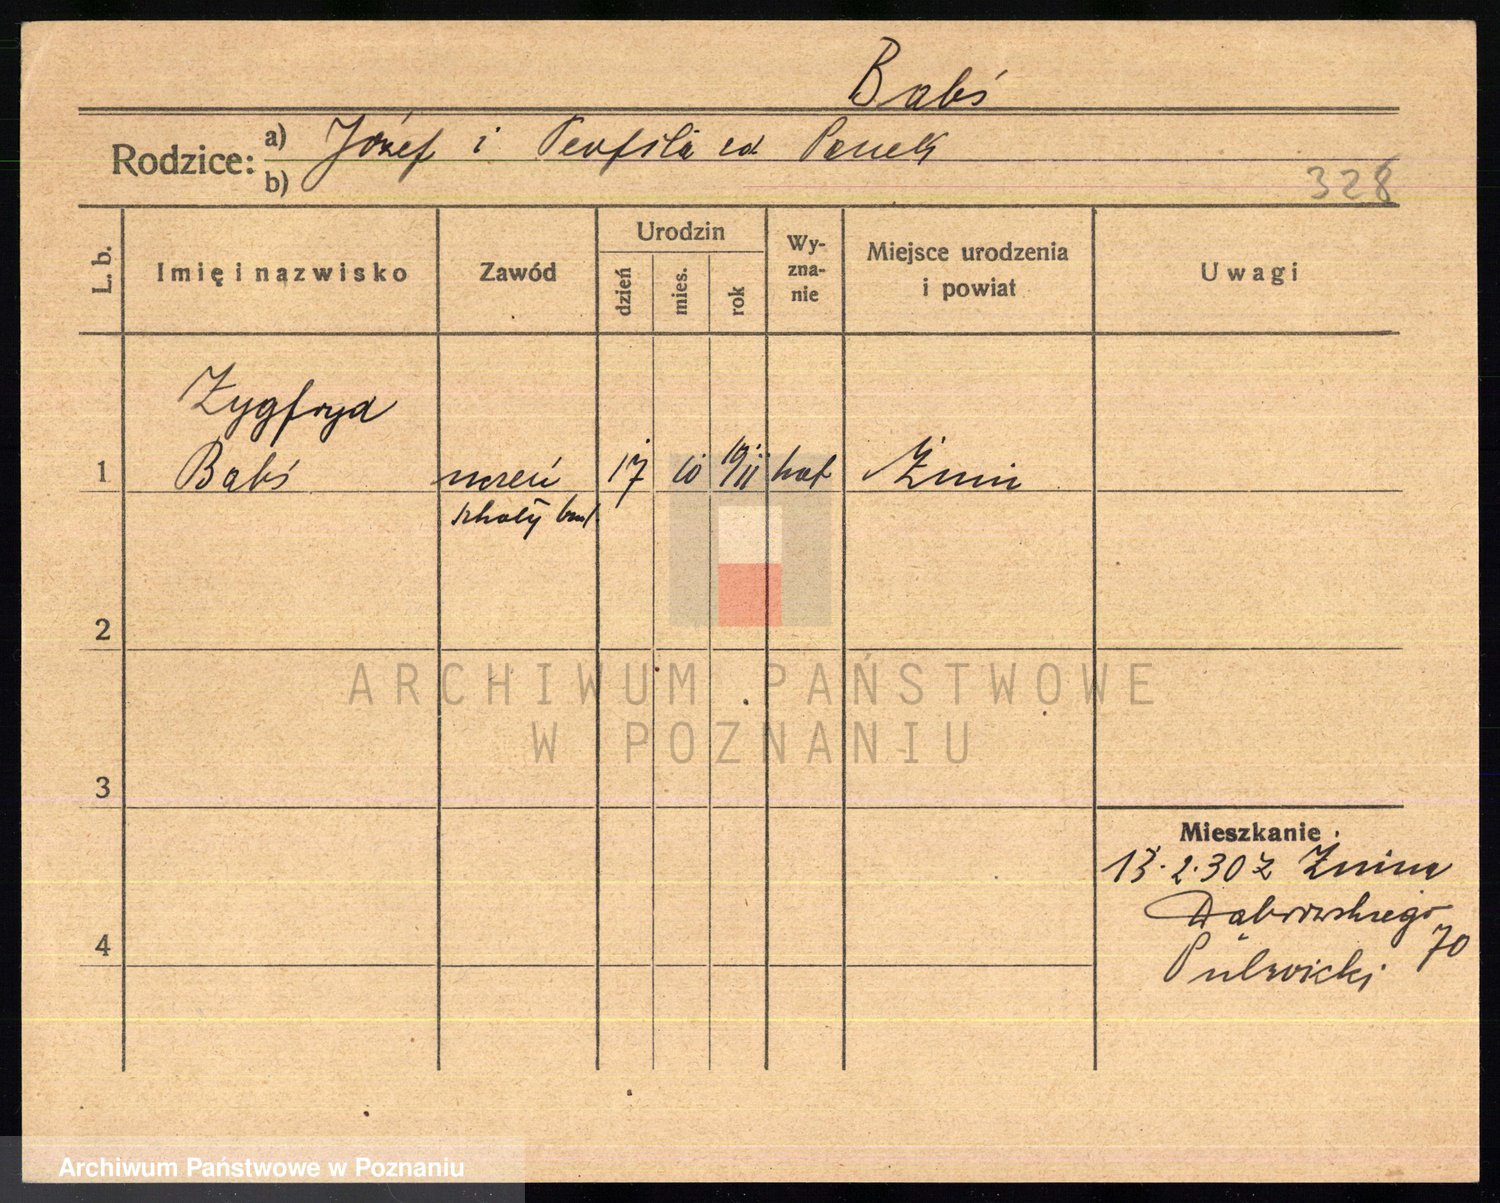 Babś
Rodzice: a) Józef i Teofila zd Panek
b)
328
L. b. Imię i nazwisko Zawód Urodzin dzień mies. rok Wy-zna-nie Miejsce urodzenia i powiat Uwagi
Zygfryd
1 Babś uczeń 17 10 1911 kat Żnin
szkoły bud.
2
ARCHIWUM PAŃSTWOWE
W POZNANIU
3
Mieszkanie
13.2.30 z Żnina
Dąbrowskiego 70
4
Archiwum Państwowe w Poznaniu